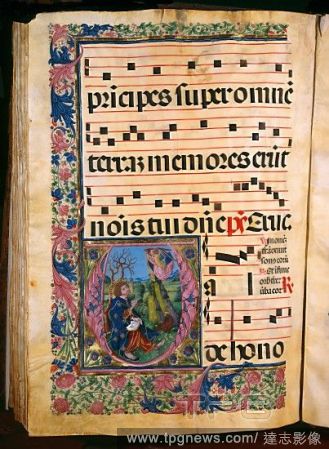 prı̄cipes super omnē
terraz memores erūt
noīs tui dn̄e p̄z Eruc
a
de hono
TPG
www.tpgnews.com/ 達志影像